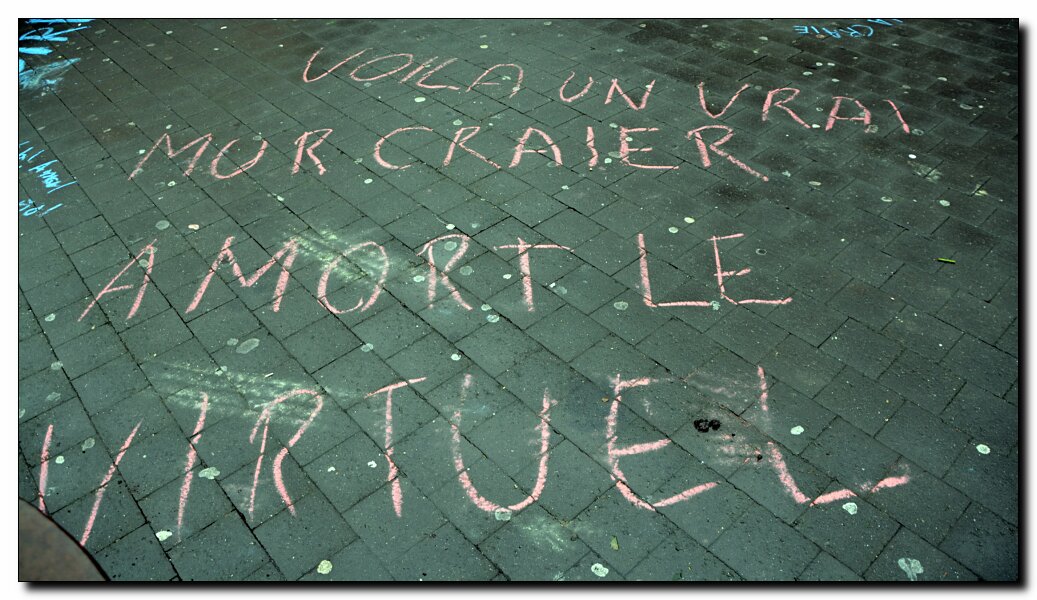 VOILA UN VRAI
MUR CRAIER
A MORT LE
VIRTUEL
LA CRAIE